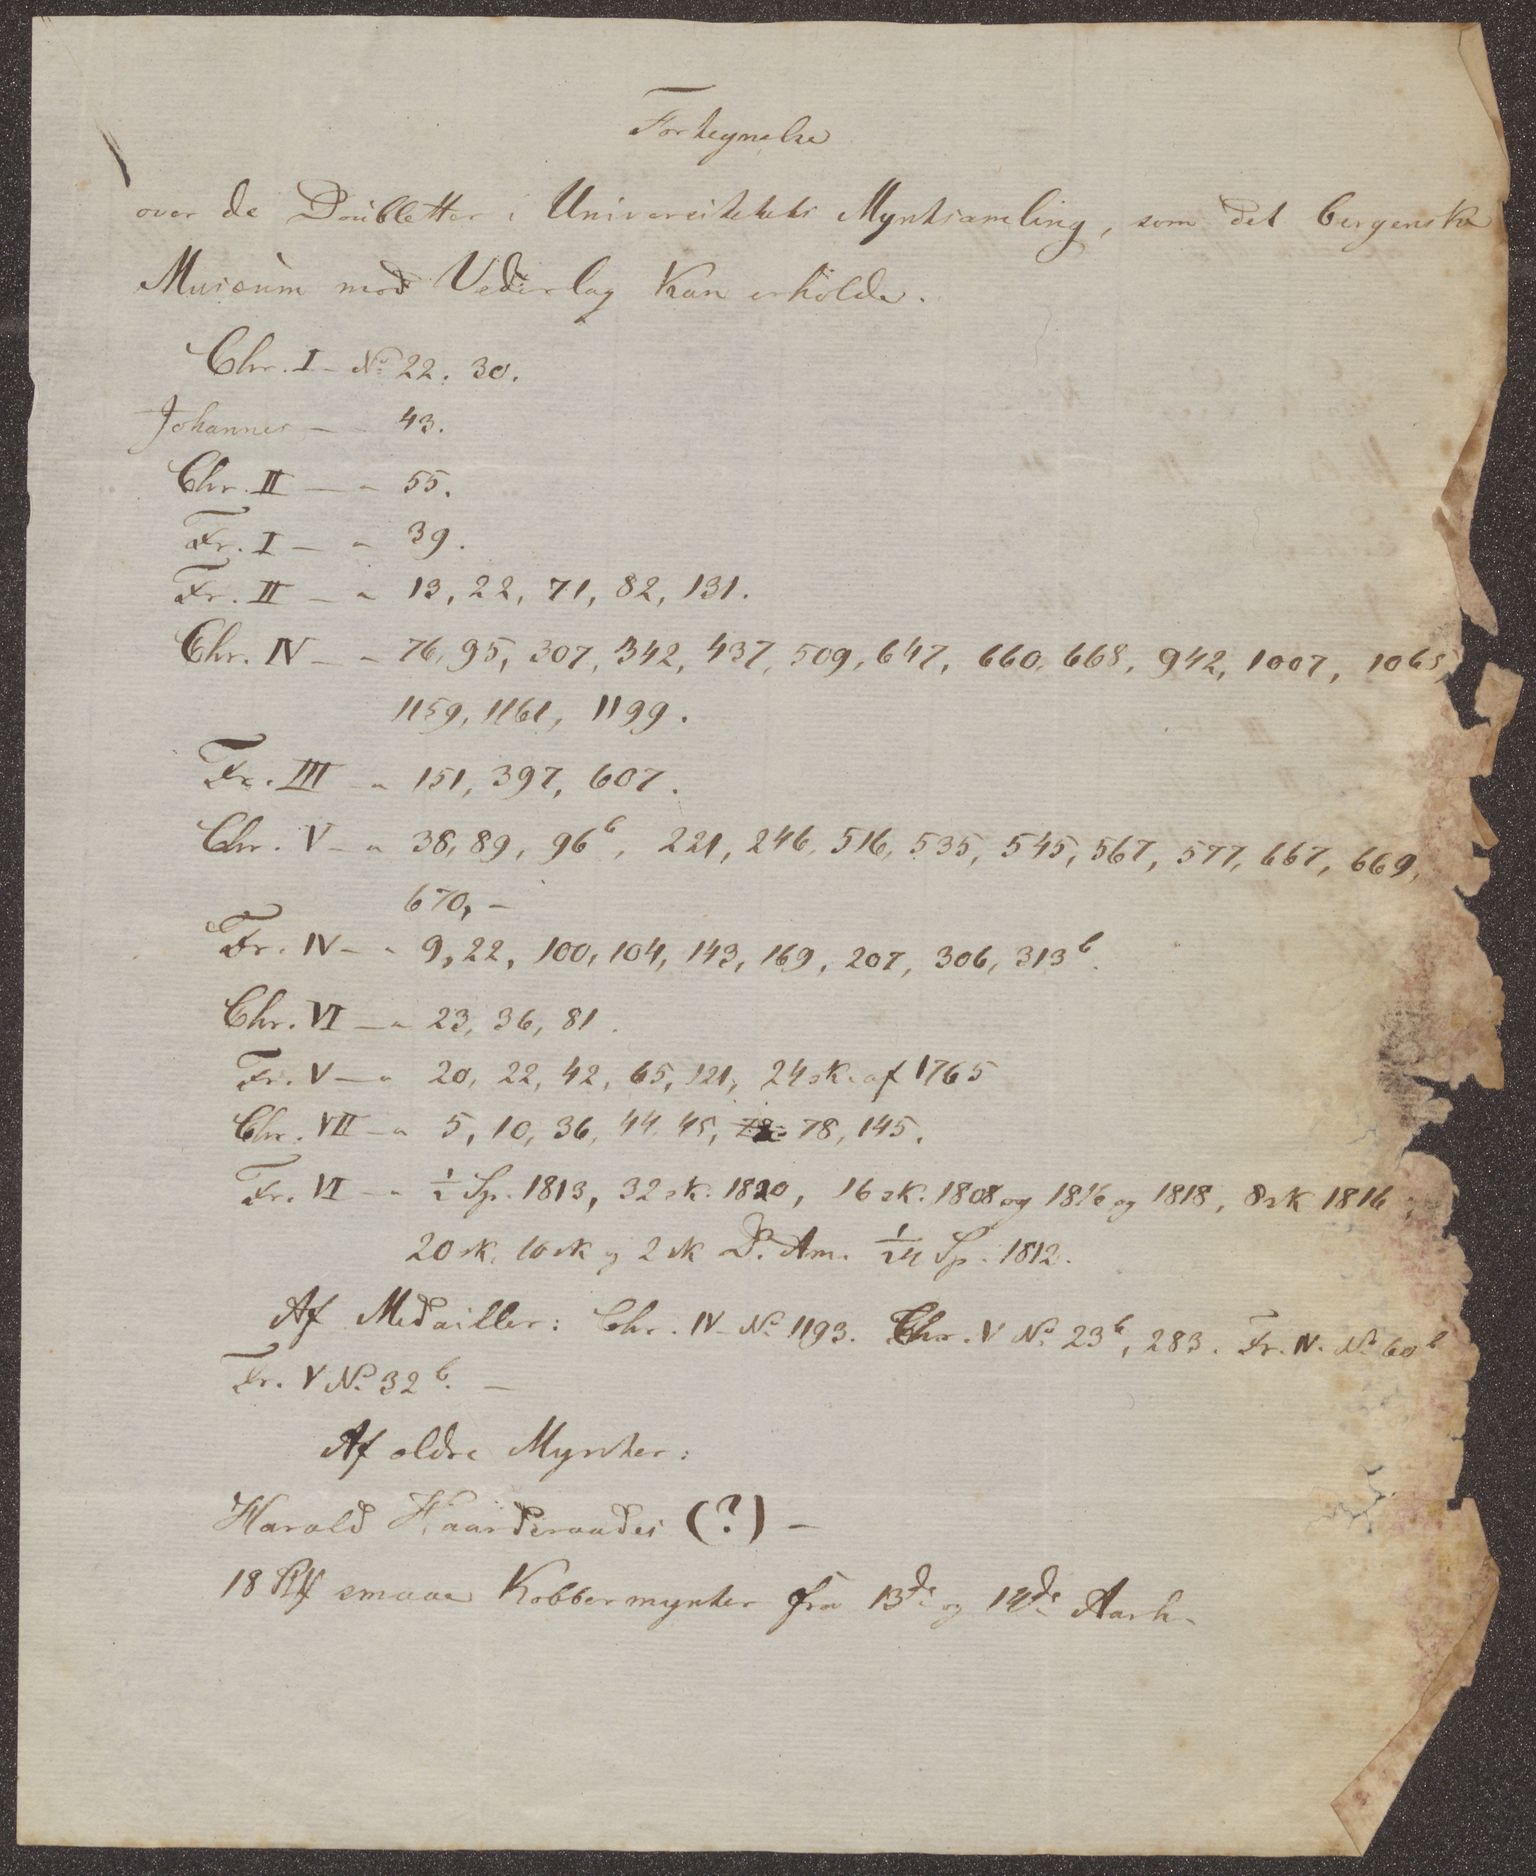 Fortegnelse
over de Doubletter i Universitetets Myntsamling, som det bergenske
Museum mod Vederlag kan erholde.
Chr. I - No 22. 30.
Johannes — - 43.
Chr. II — - 55.
Fr. I — - 39.
Fr. II — - 13, 22, 71, 82, 131.
Chr. IV — - 76, 95, 307, 342, 437, 509, 647, 660, 668, 942, 1007, 1065,
1159, 1161, 1199.
Fr. III - - 151, 397, 607.
Chr. V - - 38, 89, 96b, 221, 246, 516, 535, 545, 567, 577, 667, 669,
670, -
Fr. IV - - 9, 22, 100, 104, 143, 169, 207, 306, 313b.
Chr. VI — - 23, 36, 81.
Fr. V — - 20, 22, 42, 65, 121, 24 sk. af 1765
Chr. VII - - 5, 10, 36, 44, 45, 78, 145.
Fr. VI - - ½ Sp. 1813, 32 sk. 1820, 16 sk. 1808 og 1816 og 1818, 8 sk 1816,
20 sk, 10 sk og 2 sk D. Am. 1/24 Sp. 1812.
Af Medailler: Chr. IV - No 1193. Chr. V No 23b, 283. Fr. IV. No 60b
Fr. V No 32b. —
Af ældre Mynter:
Harald Haarderaades (?) —
18 smaae Kobbermynter fra 13de og 14de Aarh.